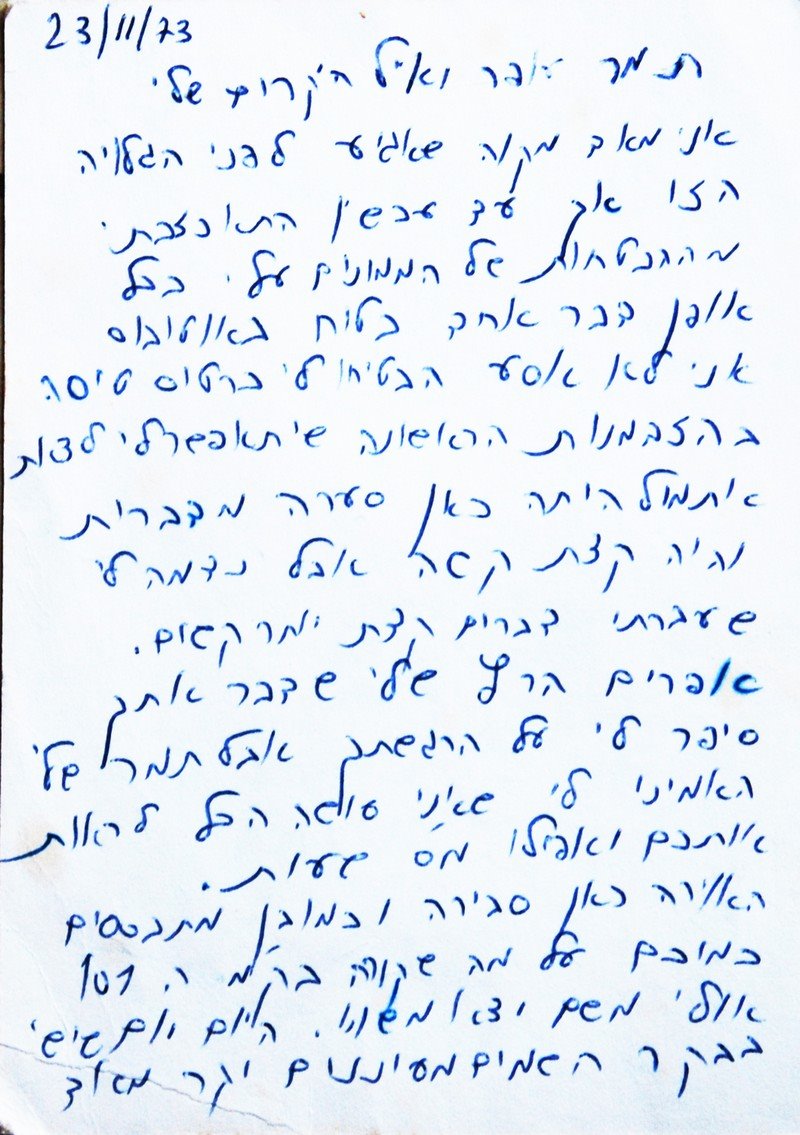 23/11/73
תמר עופר ואיל היקרים שלי
אני מאב מקוה שאגיע לפני הגלויה
הזו אך עד עכשיו התאכזבתי
מההבטחות של הממונים עלי. בכל
אופן דבר אחד בטוח באוטובוס
אני לא אסע הבטיחו לי כרטיס טיסה
בהזדמנות הראשונה שיתאפשר לי לצאת
אתמול היתה כאן סערה מדברית
והיה קצת קשה אבל נדמה לי
שעברתי דברים קצת יותר קשים.
אפרים הרץ שלי שדבר אתך
סיפר לי על הרגשתך אבל תמר שלי
האמיני לי שאיני עושה הכל לראות
אותכם ואפילו מס שעות.
האוירה כאן סבירה וכמובן מתבססים
כמוכם על מה שקורה בק"מ ה 101
אולי משם יצא משהו. היום יום שישי
בבקר השמים מעוננים יקר מאוד